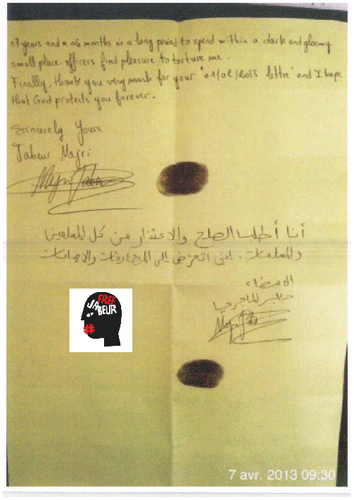 07 years and a 06 months is a long period to spend within a dark and gloomy
small place. officers find pleasure to torture me.
Finally, thank you very much for your "01/02/2013 lettre" and I hope
that God protects you forever.
Sincerely Yours
Jabeur Mejri
أنا أطلب الصلح والاعتذار من كل المسلمين
والمسلمات. إنني أتعرض إلى المضايقات والإهانات
الإمضاء
جابر الماجري
FREE
JABEUR
#
7 avr. 2013 09:30